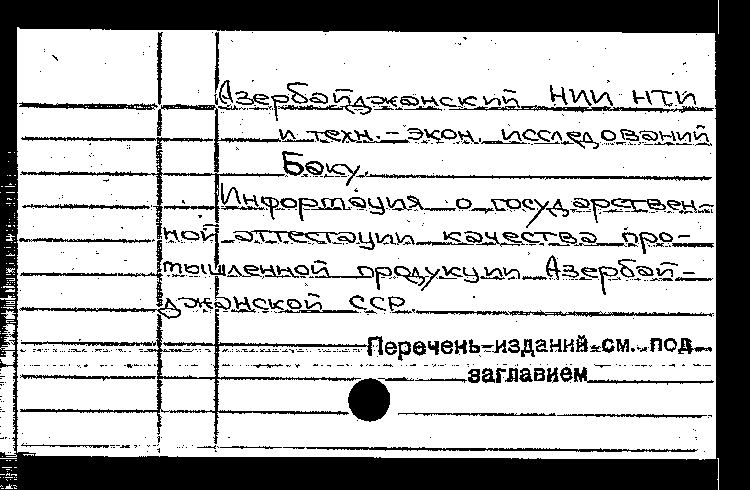 Азербайджанский НИИ НТИ
и техн.-экон. исследований
Баку.
Информация о государствен-
ной аттестации качества про-
мышленной продукции Азербай-
джанской ССР
Перечень изданий см. под
заглавием